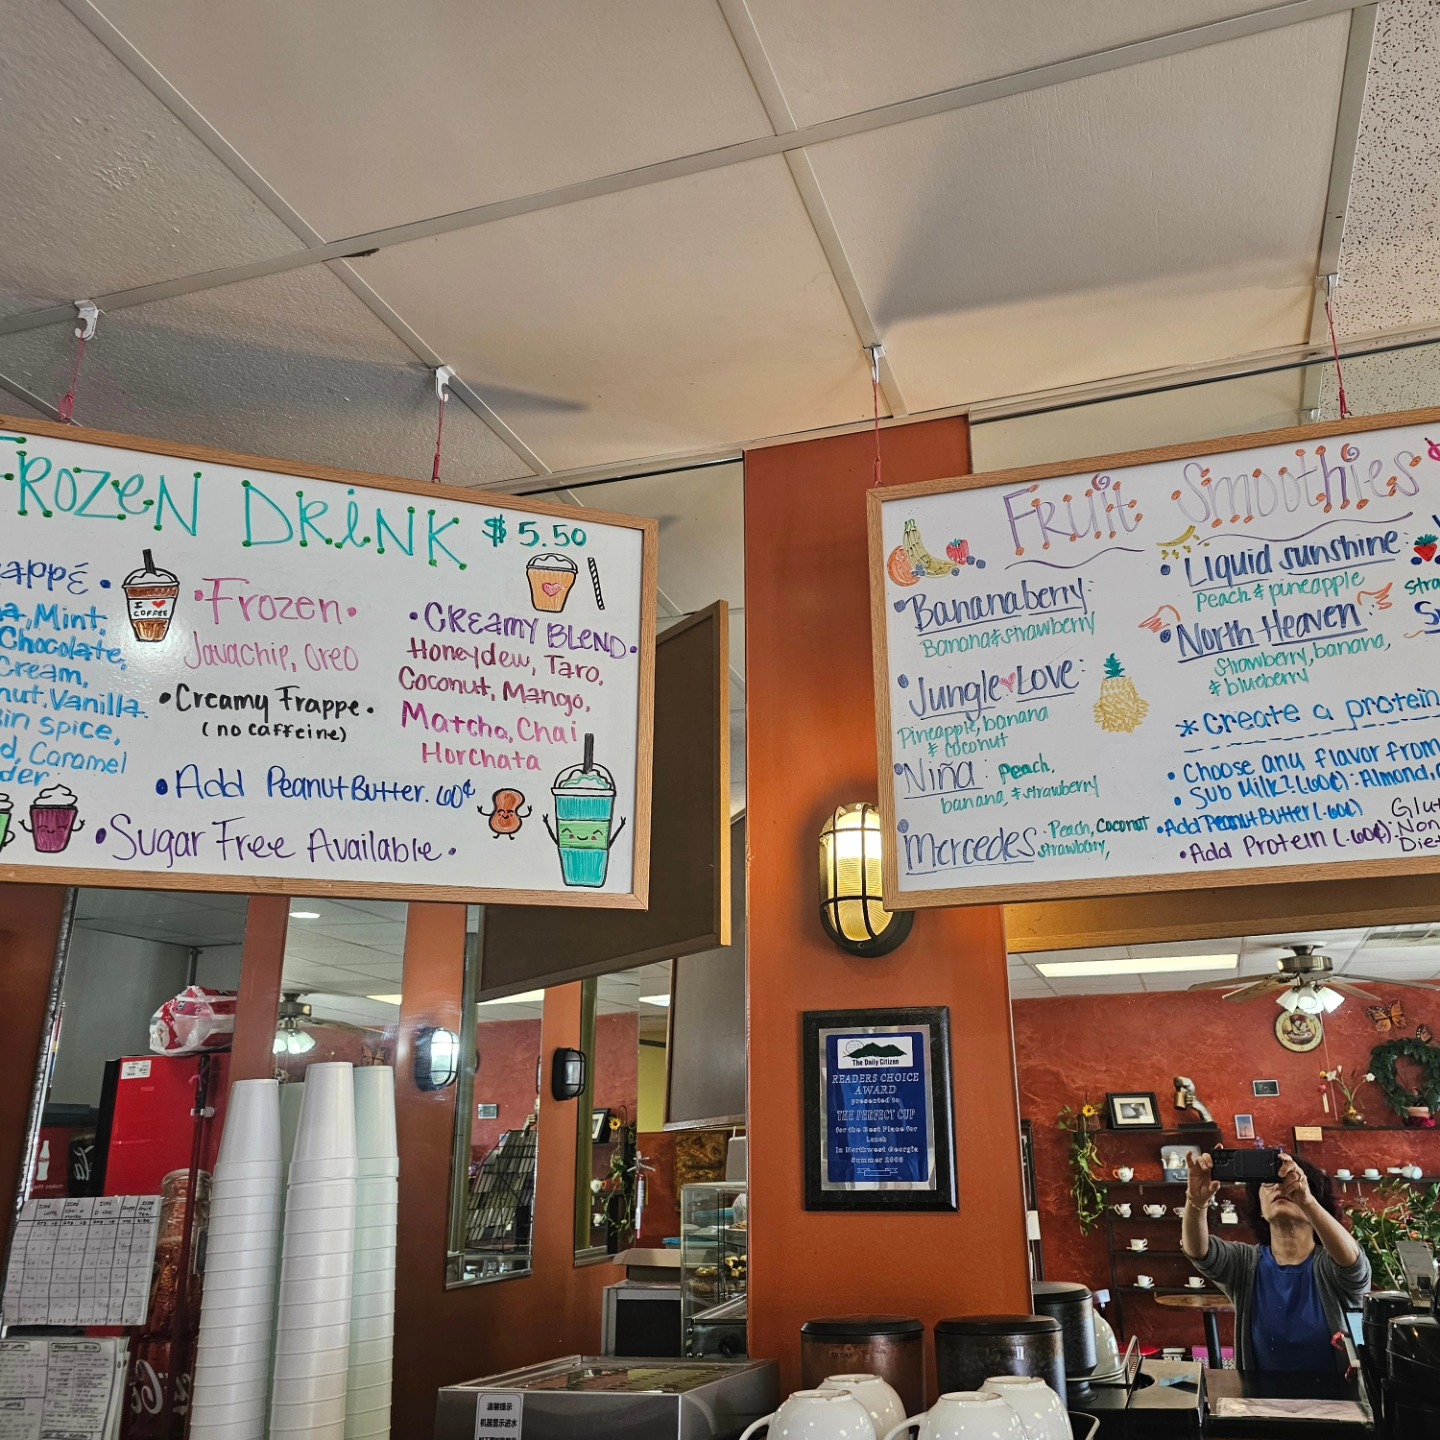 FROZEN DRINK $5.50
appé •
a, Mint,
Chocolate,
Cream,
nut, Vanilla.
in spice,
d, Caramel
der.
I ♥
COFFEE
• Frozen •
Javachip, Oreo
• Creamy Frappe •
(no caffeine)
• CREAMY BLEND •
Honeydew, Taro,
Coconut, Mango,
Matcha, Chai
Horchata
• Add Peanut Butter. 60¢
• Sugar Free Available •
Fruit Smoothies
• Bananaberry:
Banana & strawberry
• Jungle ♥ Love:
Pineapple, banana
& coconut
• Niña: Peach,
banana, & strawberry
• Mercedes: Peach, Coconut
strawberry,
• Liquid sunshine:
Peach & pineapple
• North Heaven:
Strawberry, banana,
& blueberry
Stra
* Create a protein
• Choose any flavor from
• Sub Milk? (60¢): Almond,
• Add Peanut Butter (.60¢)
• Add Protein (.60¢):
Glu
Non
Die
The Daily Citizen
READERS CHOICE
AWARD
presented to
THE PERFECT CUP
for the Best Place for
Lunch
in Northwest Georgia
Summer 2008
温馨提示
机器显示进水